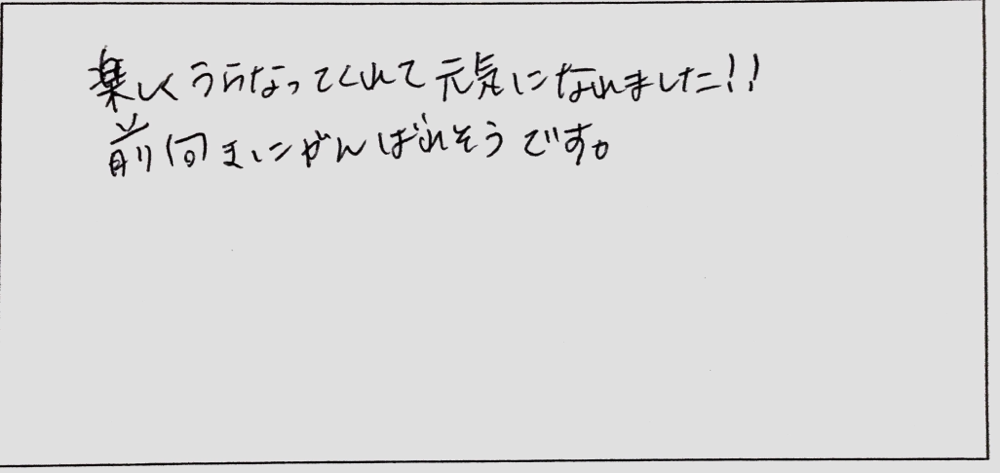 楽しくうらなってくれて元気になれました!!
前向きにがんばれそうです。